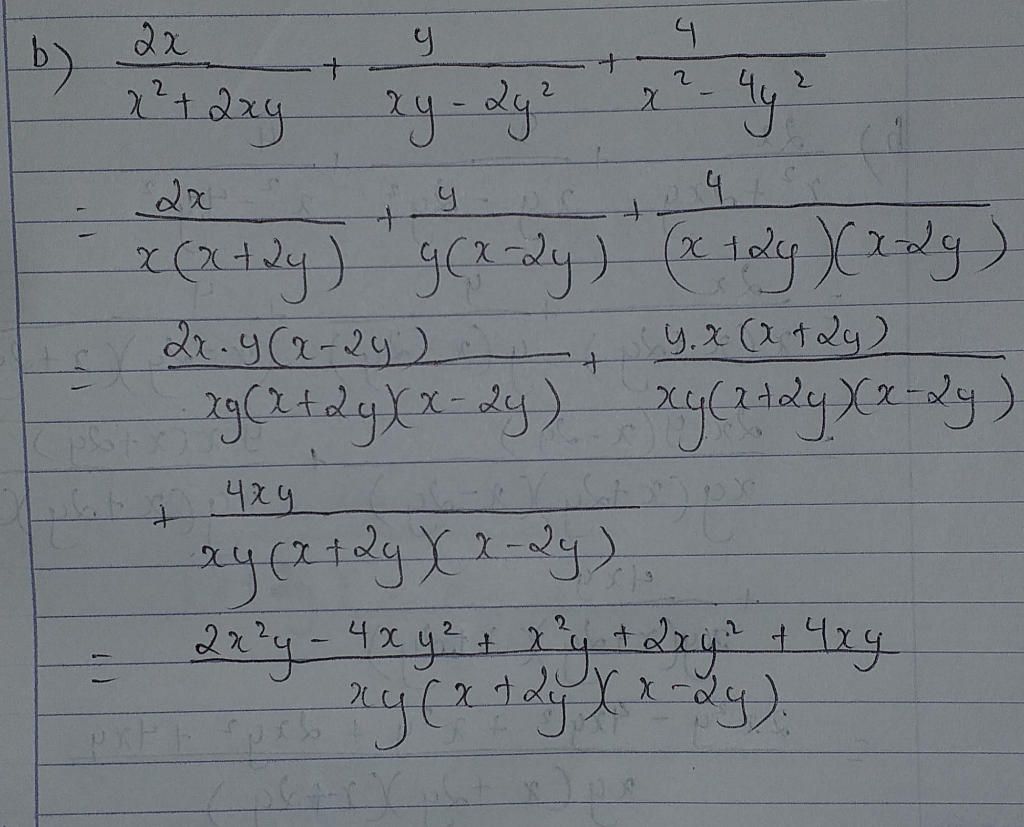 b) 2x/(x² + 2xy) + y/(xy - 2y²) + 4/(x² - 4y²)
= 2x/(x(x+2y)) + y/(y(x-2y)) + 4/((x+2y)(x-2y))
= 2x.y(x-2y)/(xy(x+2y)(x-2y)) + y.x(x+2y)/(xy(x+2y)(x-2y))
+ 4xy/(xy(x+2y)(x-2y))
= (2x²y - 4xy² + x²y + 2xy² + 4xy)/(xy(x+2y)(x-2y)).